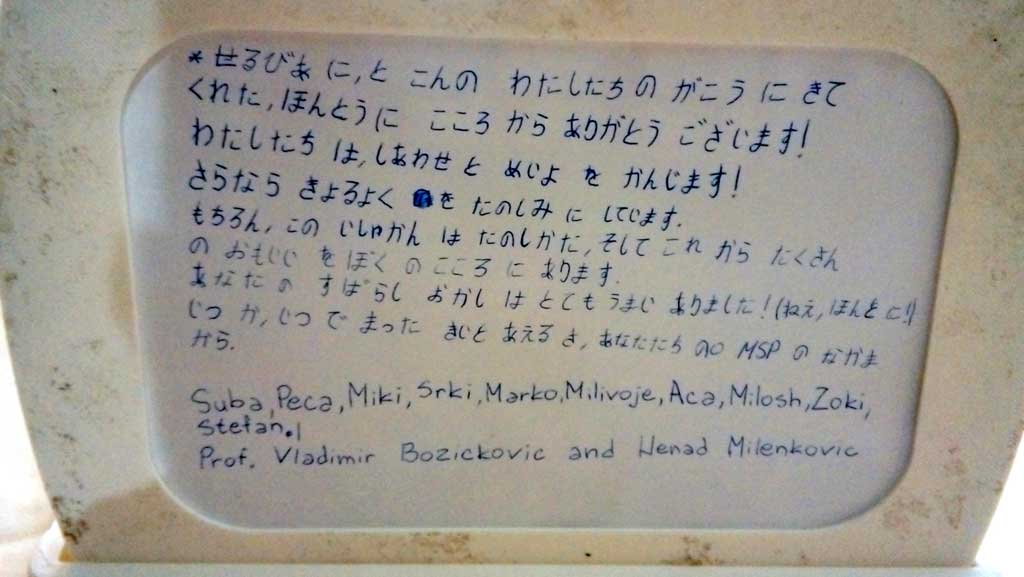 * せるびあ に, と こんの わたしたち の がこう に きて
くれた, ほんとうに こころ から ありがとう ございます!
わたしたち は, しあわせ と めじよ を かんじます!
さらなら きょるよく を たのしみ に しています.
もちろん, この じしゅかん は たのしかた, そして これ から たくさん
の おもじじ を ぼく の こころ に あります.
あなた の すばらし おかし は とても うまじ ありました! (ねえ, ほんと に!)
じつ か, じつ で まった きじと あえる さ, あなたたち の MSP の なかま
から.
Suba, Peca, Miki, Srki, Marko, Milivoje, Aca, Milosh, Zoki,
Stefan.
Prof. Vladimir Bozickovic and Nenad Milenkovic